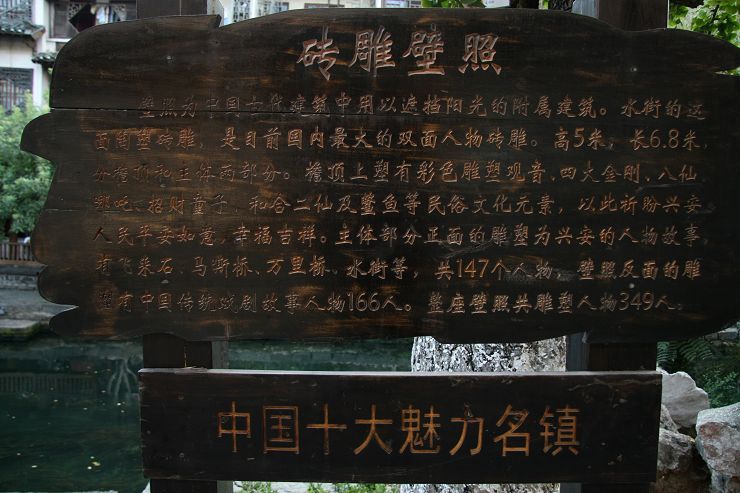 砖雕壁照
壁照为中国古代建筑中用以遮挡阳光的附属建筑。水街的这
面陶塑砖雕，是目前国内最大的双面人物砖雕。高5米，长6.8米，
分檐顶和主体两部分。檐顶上塑有彩色雕塑观音、四大金刚、八仙、
哪吒、招财童子、和合二仙及鳌鱼等民俗文化元素，以此祈盼兴安
人民平安如意，幸福吉祥。主体部分正面的雕塑为兴安的人物故事，
有飞来石、马嘶桥、万里桥、水街等，共147个人物，壁照反面的雕
塑有中国传统戏剧故事人物166人。整座壁照共雕塑人物349人。
中国十大魅力名镇